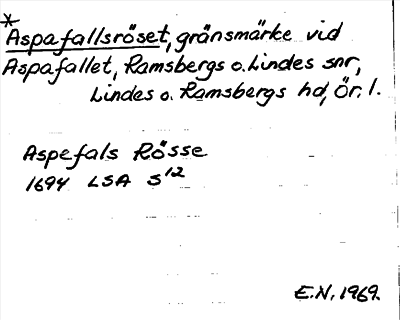 *
Aspafallsröset, gränsmärke vid
Aspafallet, Ramsbergs o. Lindes snr,
Lindes o. Ramsbergs hd, Ör. l.
Aspefals Rösse
1694 LSA S¹²
E.N. 1969.